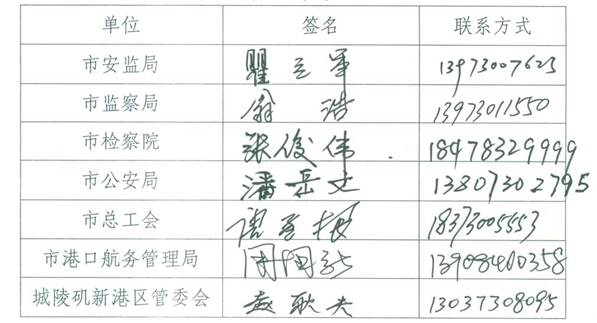 单位 签名 联系方式
市安监局 瞿立军 13973007625
市监察局 翁浩 13973011550
市检察院 张俊伟 18478329999
市公安局 潘岳文 13807302795
市总工会 18373005553
市港口航务管理局 13908400358
城陵矶新港区管委会 赵耿夫 13037308095